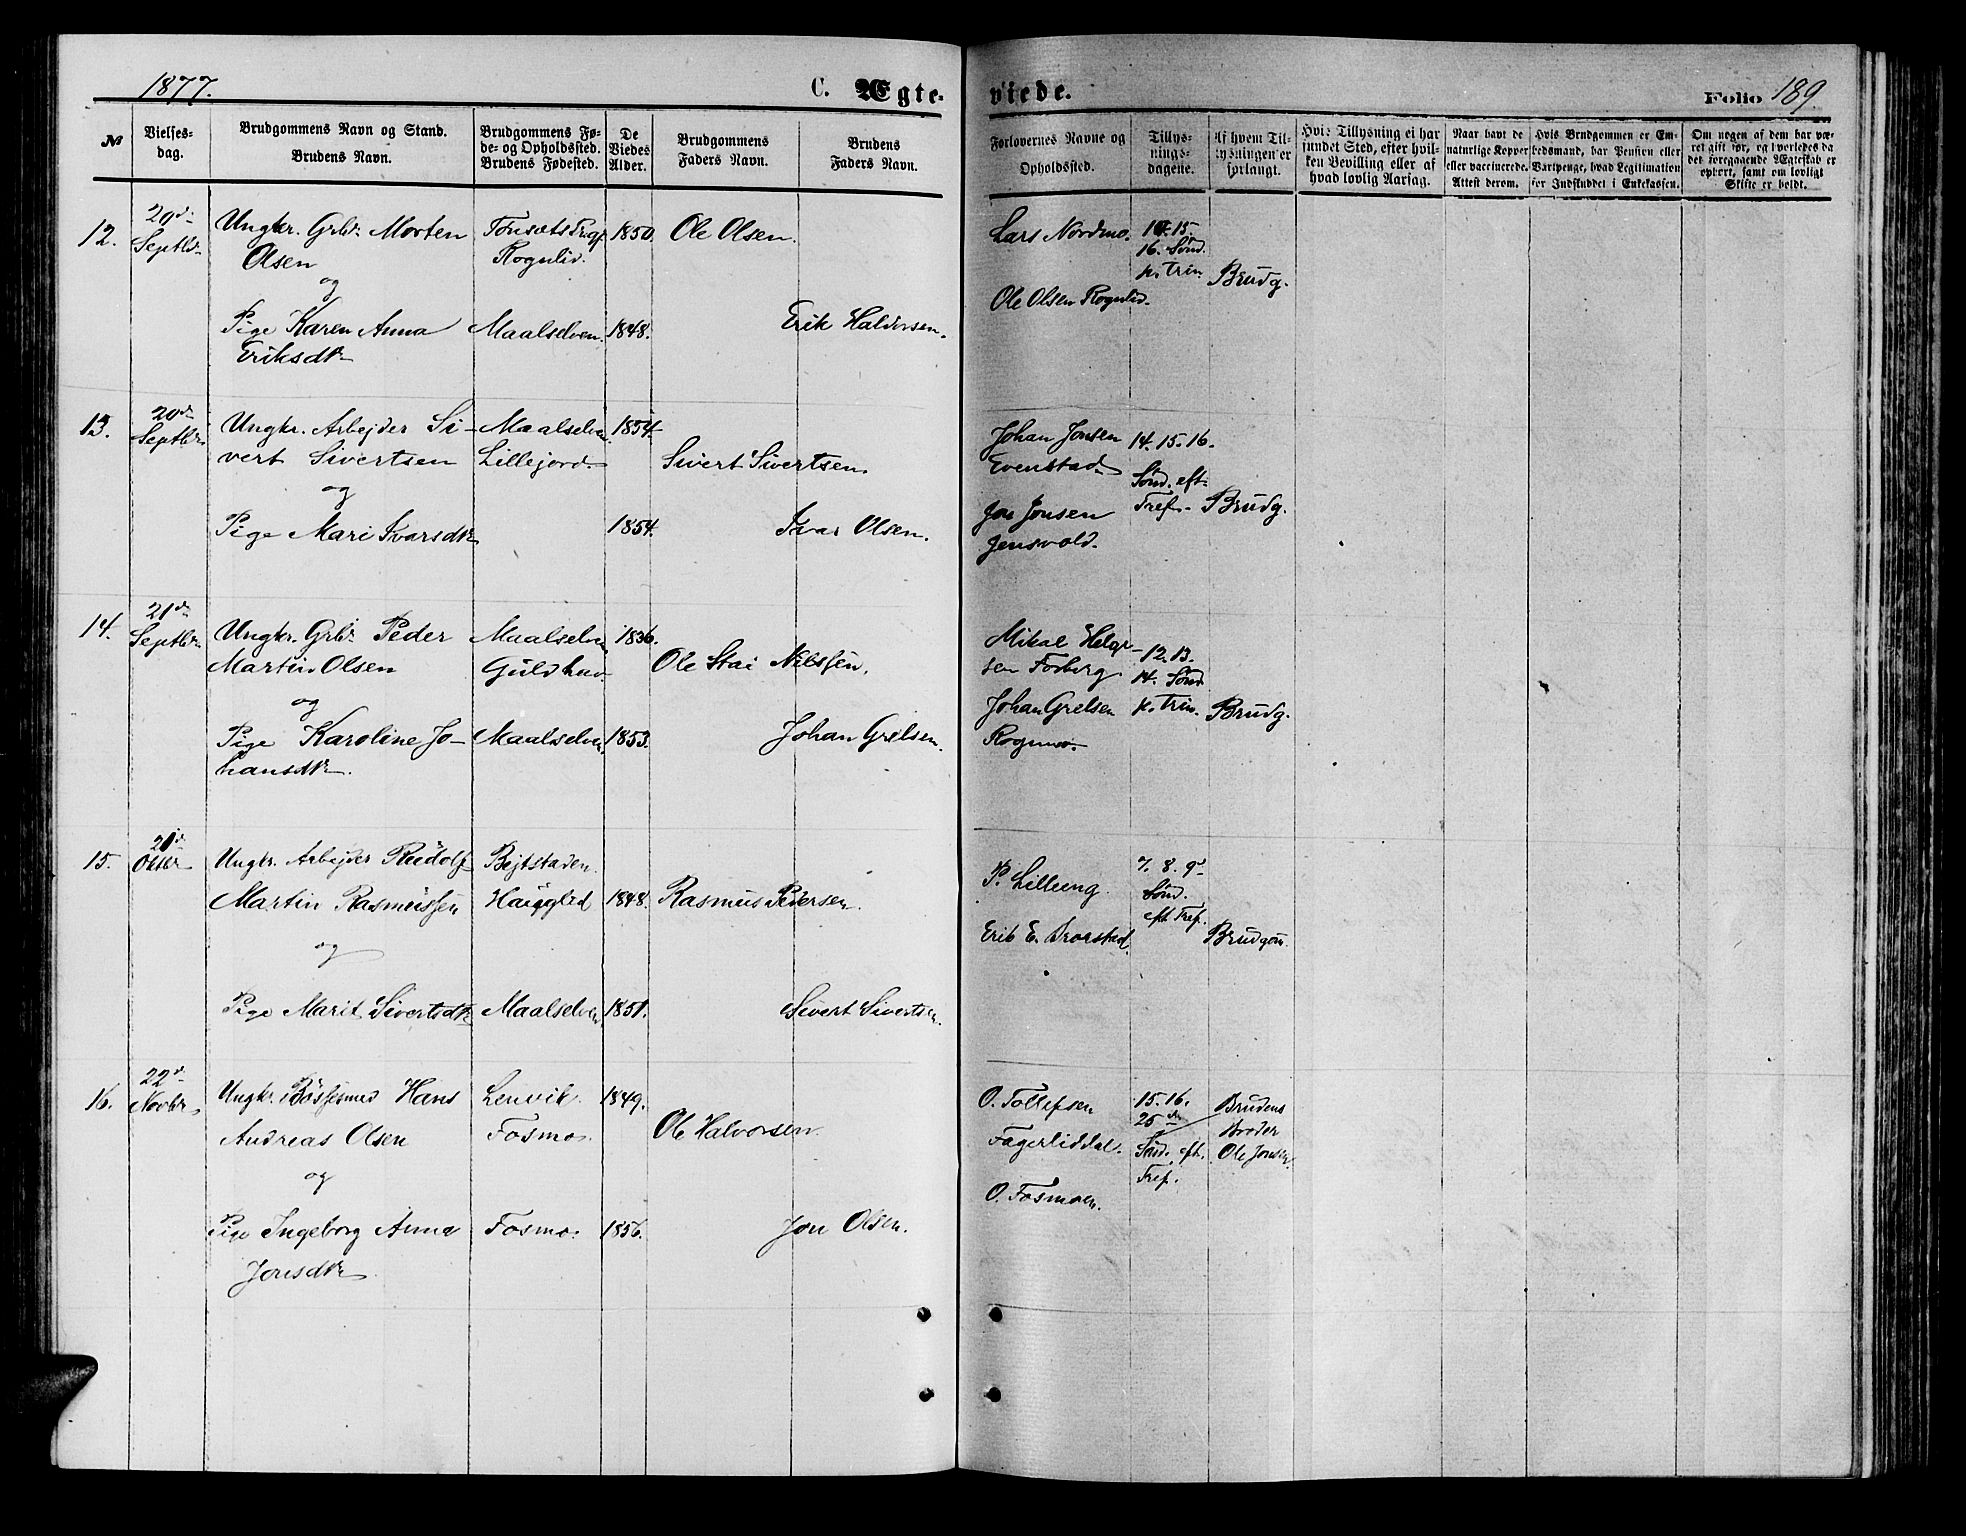 1877.
C. Ægte-
viede.
Folio 189
№
Vielses-
dag.
Brudgommens Navn og Stand.
Brudens Navn.
Brudgommens Fø-
de- og Opholdssted.
Brudens Fødested.
De
Viedes
Alder.
Brudgommens
Faders Navn.
Brudens
Faders Navn.
Forlovernes Navne og
Opholdssted.
Tillys-
nings-
dagene.
Af hvem Til-
lysningen er
forlangt.
Hvis Tillysning ei har
fundet Sted, efter hvil-
ken Bevilling eller af
hvad lovlig Aarsag.
Naar havt de
naturlige Kopper
eller vaccinerede.
Attest derom.
Hvis Brudgommen er Em-
bedsmand, har Pension eller
Vartpenge, hvad Legitimation
for Indskuddet i Enkekassen.
Om nogen af dem har væ-
ret gift før, og hvorledes da
det foregaaende Ægteskab er
ophørt, samt om lovligt
Skifte er holdt.
12.
20de
Septbr
Ungkr. Grbr. Morten
Olsen
og
Pige Karen Anna
Eriksdtr
Tønsæts Prgj
Rognlid.
Maalselven.
1850.
1848.
Ole Olsen.
Erik Haldorsen.
Lars Nordmo.
Ole Olsen Rognlid.
14. 15.
16. Sønd.
p. Trin.
Brudg.
13.
20de
Septbr
Ungkr. Arbejder Si-
vert Sivertsen
og
Pige Mari Ivarsdtr
Maalselven.
Lillejord.
1854.
1854.
Sivert Sivertsen.
Ivar Olsen.
Johan Jonsen
Evenstad
Jon Jonsen
Jensvold.
14. 15. 16.
Sønd. eft.
Tref.
Brudg.
14.
21de
Septbr
Ungkr. Grbr. Peder
Martin Olsen
og
Pige Karoline Jo-
hansdtr.
Maalselven
Guldhav
Maalselven
1836.
1853.
Ole Stai Nilssen.
Johan Grelsen.
Mikal Helge-
sen Fosberg
Johan Grelsen
Rognmo.
12. 13.
14. Sønd
p. Trin.
Brudg.
15.
21de
Oktbr
Ungkr. Arbejder Rudolf
Martin Rasmussen
og
Pige Marit Sivertsdtr
Bejtstaden.
Hauglid
Maalselven
1848.
1851.
Rasmus Pedersen.
Sivert Sivertsen.
P. Lilleeng.
Erik E.
7. 8. 9de
Sønd.
eft. Tref.
Brudgom.
16.
22de
Novbr
Ungkr. Bøssesmed Hans
Andreas Olsen
og
Pige Ingeborg Anna
Jonsdtr
Lenvik
Fosmo.
Fosmo.
1849.
1856.
Ole Halvorsen.
Jon Olsen.
O. Tollefsen
Fagerliddal.
O. Fosmoen.
15. 16.
25de
Sønd. eft.
Tref.
Brudens
Broder
Ole Jonsen.